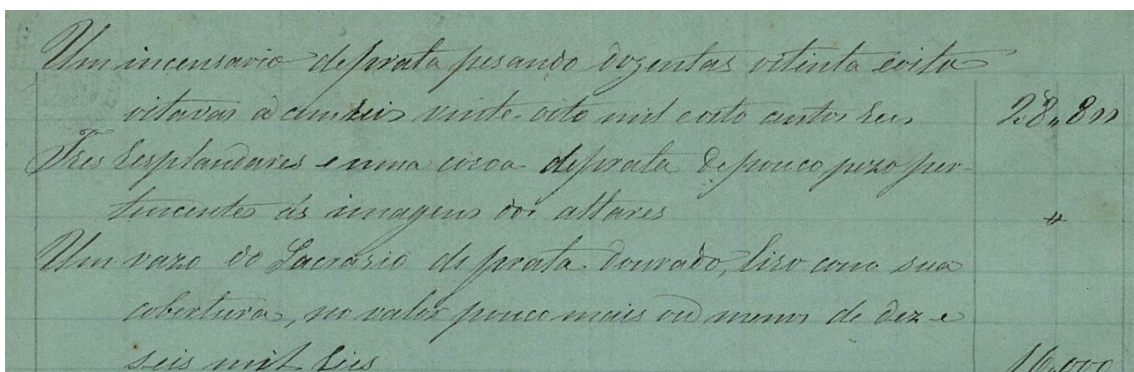 Um incensario de prata pesando dozentas oitenta e oito
oitavas a cem reis vinte-oito mil e oito centos reis 28,800
Tres Resplandares e uma coroa de prata de pouco pezo per-
tencentes ás imagens dos altares "
Um vazo do Sacrario de prata dourado, lizo com sua
cobertura, no valor pouco mais ou menos de dez e
seis mil Reis 16,000